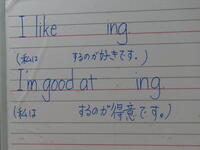 I like      ing.
(私は      するのが好きです.)
I'm good at      ing.
(私は      するのが得意です。)